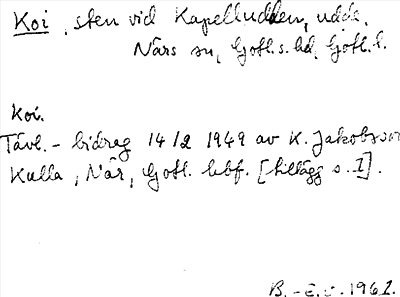 Koi, sten vid Kapelludden, udde,
Närs sn, Gotl. s. hd, Gotl. l.
Koi.
Tävl. - bidrag 14/2 1949 av K. Jakobsson
Kulla, När, Gotl. hbf. [tillägg s. 1].
B. - E. 1961.